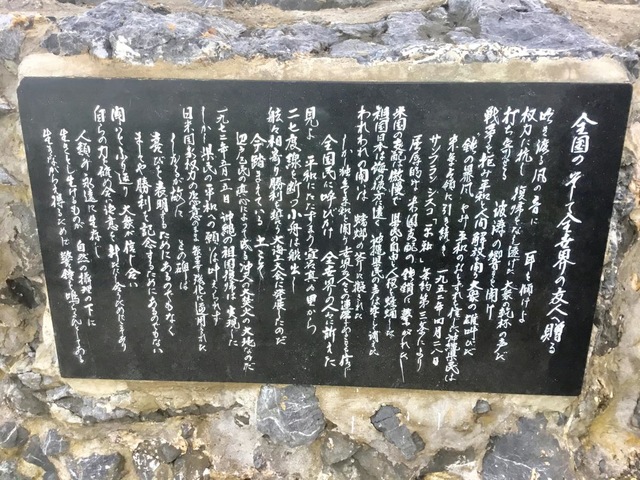 全国の そして全世界の友人へ贈る
吹き渡る風の音に 耳を傾けよ
権力に抗し 復帰をなし遂げた 大衆の乾杯の声だ
打ち寄せる 波濤の響きを聞け
戦争を拒み平和と人間解放を闘う大衆の雄叫びだ
〝鉄の暴風〟やみ平和のおとずれを信じた沖縄県民は
米軍占領に引き続き 一九五二年四月二八日
サンフランシスコ「平和」条約第三条により
屈辱的な米国支配の鉄鎖に繋がれた
米国の支配は傲慢で 県民の自由と人権を蹂躙した
祖国日本は海の彼方に遠く 沖縄県民の声は空しく消えた
われわれの闘いは 蟷螂の斧に擬された
しかし独立と平和を闘う世界の人々との連帯あることを信じ
全国民に呼びかけ 全世界の人々に訴えた
見よ 平和にたたずまう宜名真の里から
二七度線を断つ小舟は船出し
舷々相寄り勝利を誓う大海上大会に発展したのだ
今踏まえている 土こそ
辺戸区民の真心によって成る沖天の大焚火の大地なのだ
一九七二年五月一五日 沖縄の祖国復帰は実現した
しかし県民の平和への願いは叶えられず
日米国家権力の恣意のまま軍事強化に逆用された
しかるが故に この碑は
喜びを表明するためにあるのでもなく
まして勝利を記念するためにあるのでもない
闘いをふり返り 大衆が信じ合い
自らの力を確かめ合い決意を新たにし合うためにこそあり
人類が 永遠に生存し
生きとし生けるものが 自然の摂理の下に
生きながらえ得るために 警鐘を鳴らさんとしてある